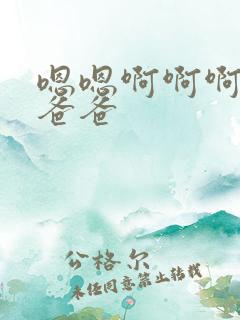 嗯嗯啊啊啊
爸爸
公格尔
未经同意禁止转载